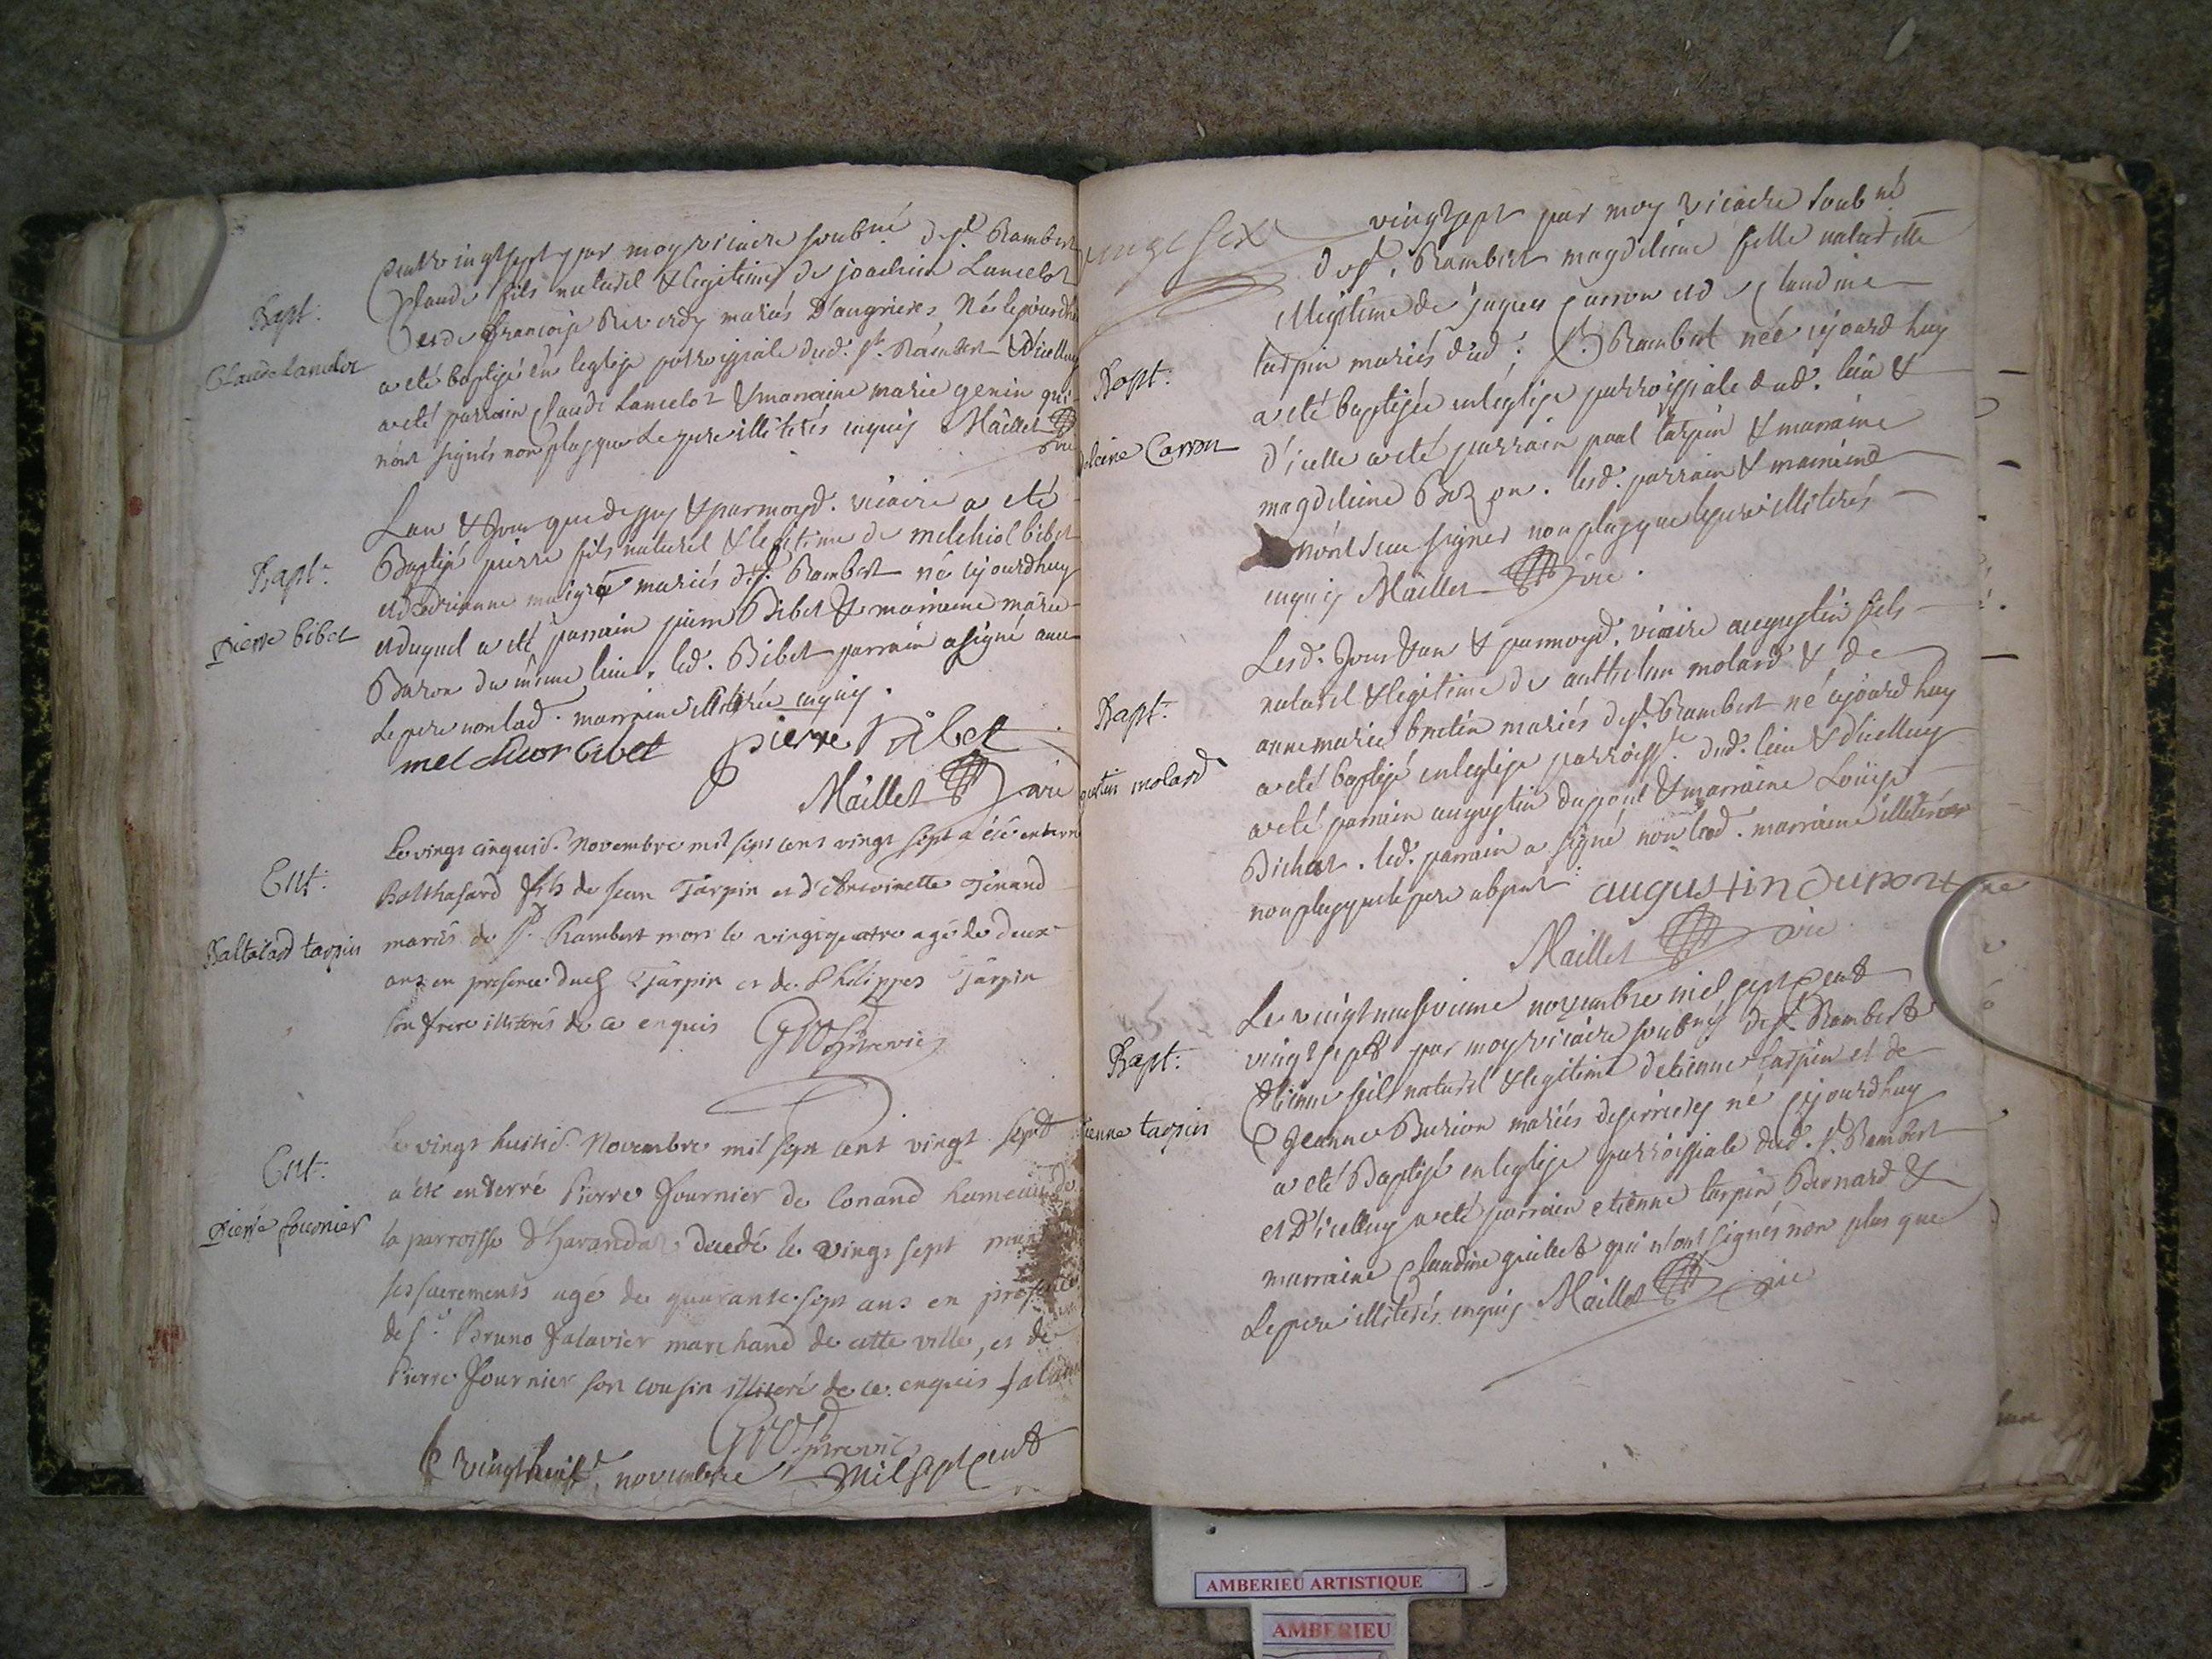 Bapt:
Claude Lancelot
cent vingt sept par moy vicaire soubné de st. Rambert
Claude fils naturel & legitime de joachim Lancelot
et de françoise Reverdy mariés D'angrieres Né le jourdhuy
a eté baptisé en leglise parroissiale dud. st. Rambert & d'icelluy
a eté parrain Claude Lancelot & marraine marie genin qui
n'ont signés non plus que Le pere illiterés enquis Maillet vic
Bapt:
pierre bibet
Lan & Jour que dessus & par moyd. vicaire a eté
Baptisé pierre fils naturel & legitime de melchiol bibet
et d'adrianne maigre mariés de st. Rambert né cejourdhuy
et duquel a eté parrain pierre Bibet & marraine marie
Buron du même lieu. led. Bibet parrain a signé avec
Le pere non lad. marraine illiterée enquis.
melchior bibet pierre Bibet
Maillet vic
Ent:
Baltasard tarpin
Le vingt cinquie. Novembre mil sept cent vingt sept a été enterré
Balthasard fils de jean Tarpin et d'Antoinette Tenand
mariés de st. Rambert mort le vingt quatre agé de deux
ans en presence dud Tarpin et de Philippes Tarpin
son frere illiterés de ce enquis
Ent:
pierre fournier
Le vingt huitie. Novembre mil sept cent vingt sept
a été enterré Pierre fournier de Conand hameau de
la parroisse d'haranda decedé le vingt sept muni
ses sacrements agé de quarante sept ans en presence
de sr. Bruno falavier marchand de cette ville, et de
Pierre fournier son cousin illiteré de ce enquis falavier
Le vingt huit. novembre mil sept cent
vingt six
Bapt:
deleine Carron
vingt sept par moy vicaire soubné
de st. Rambert magdeleine fille naturelle
& legitime de jaques Carron et de Claudine
tarpin mariés dud. st. Rambert née cejourd huy
a eté baptisée en leglise parroissiale dud. lieu &
d'icelle a eté parrain paul tarpin & marraine
magdeleine Bozon. lesd. parrain & marraine
n'ont sceu signer non plus que le pere illiterés
enquis Maillet vic.
Bapt:
gustin molard
Lesd. Jour & an & par moyd. vicaire augustin fils
naturel & legitime de anthelme molard & de
anne marie bretin mariés de st. Rambert né cejourd huy
a eté baptisé en leglise parroisse. dud. lieu & d'icelluy
a eté parrain augustin dupont & marraine Louise
Bichat. led. parrain a signé non lad. marraine illiterée
non plus que le pere absent augustin dupont
Maillet vic
Bapt:
ienne tarpin
Le vingt neufvieme novembre mil sept cent
vingt sept par moy vicaire soubné de st. Rambert
Etienne fils naturel & legitime d'etienne tarpin et de
Jeanne Burion mariés de serrieres né cejourdhuy
a eté Baptisé en leglise parroissiale dud. st. Rambert
et D'icelluy a eté parrain etienne tarpin Bernard &
marraine Claudine guillet qui n'ont signés non plus que
Le pere illiterés enquis Maillet vic
AMBERIEU ARTISTIQUE
AMBERIEU